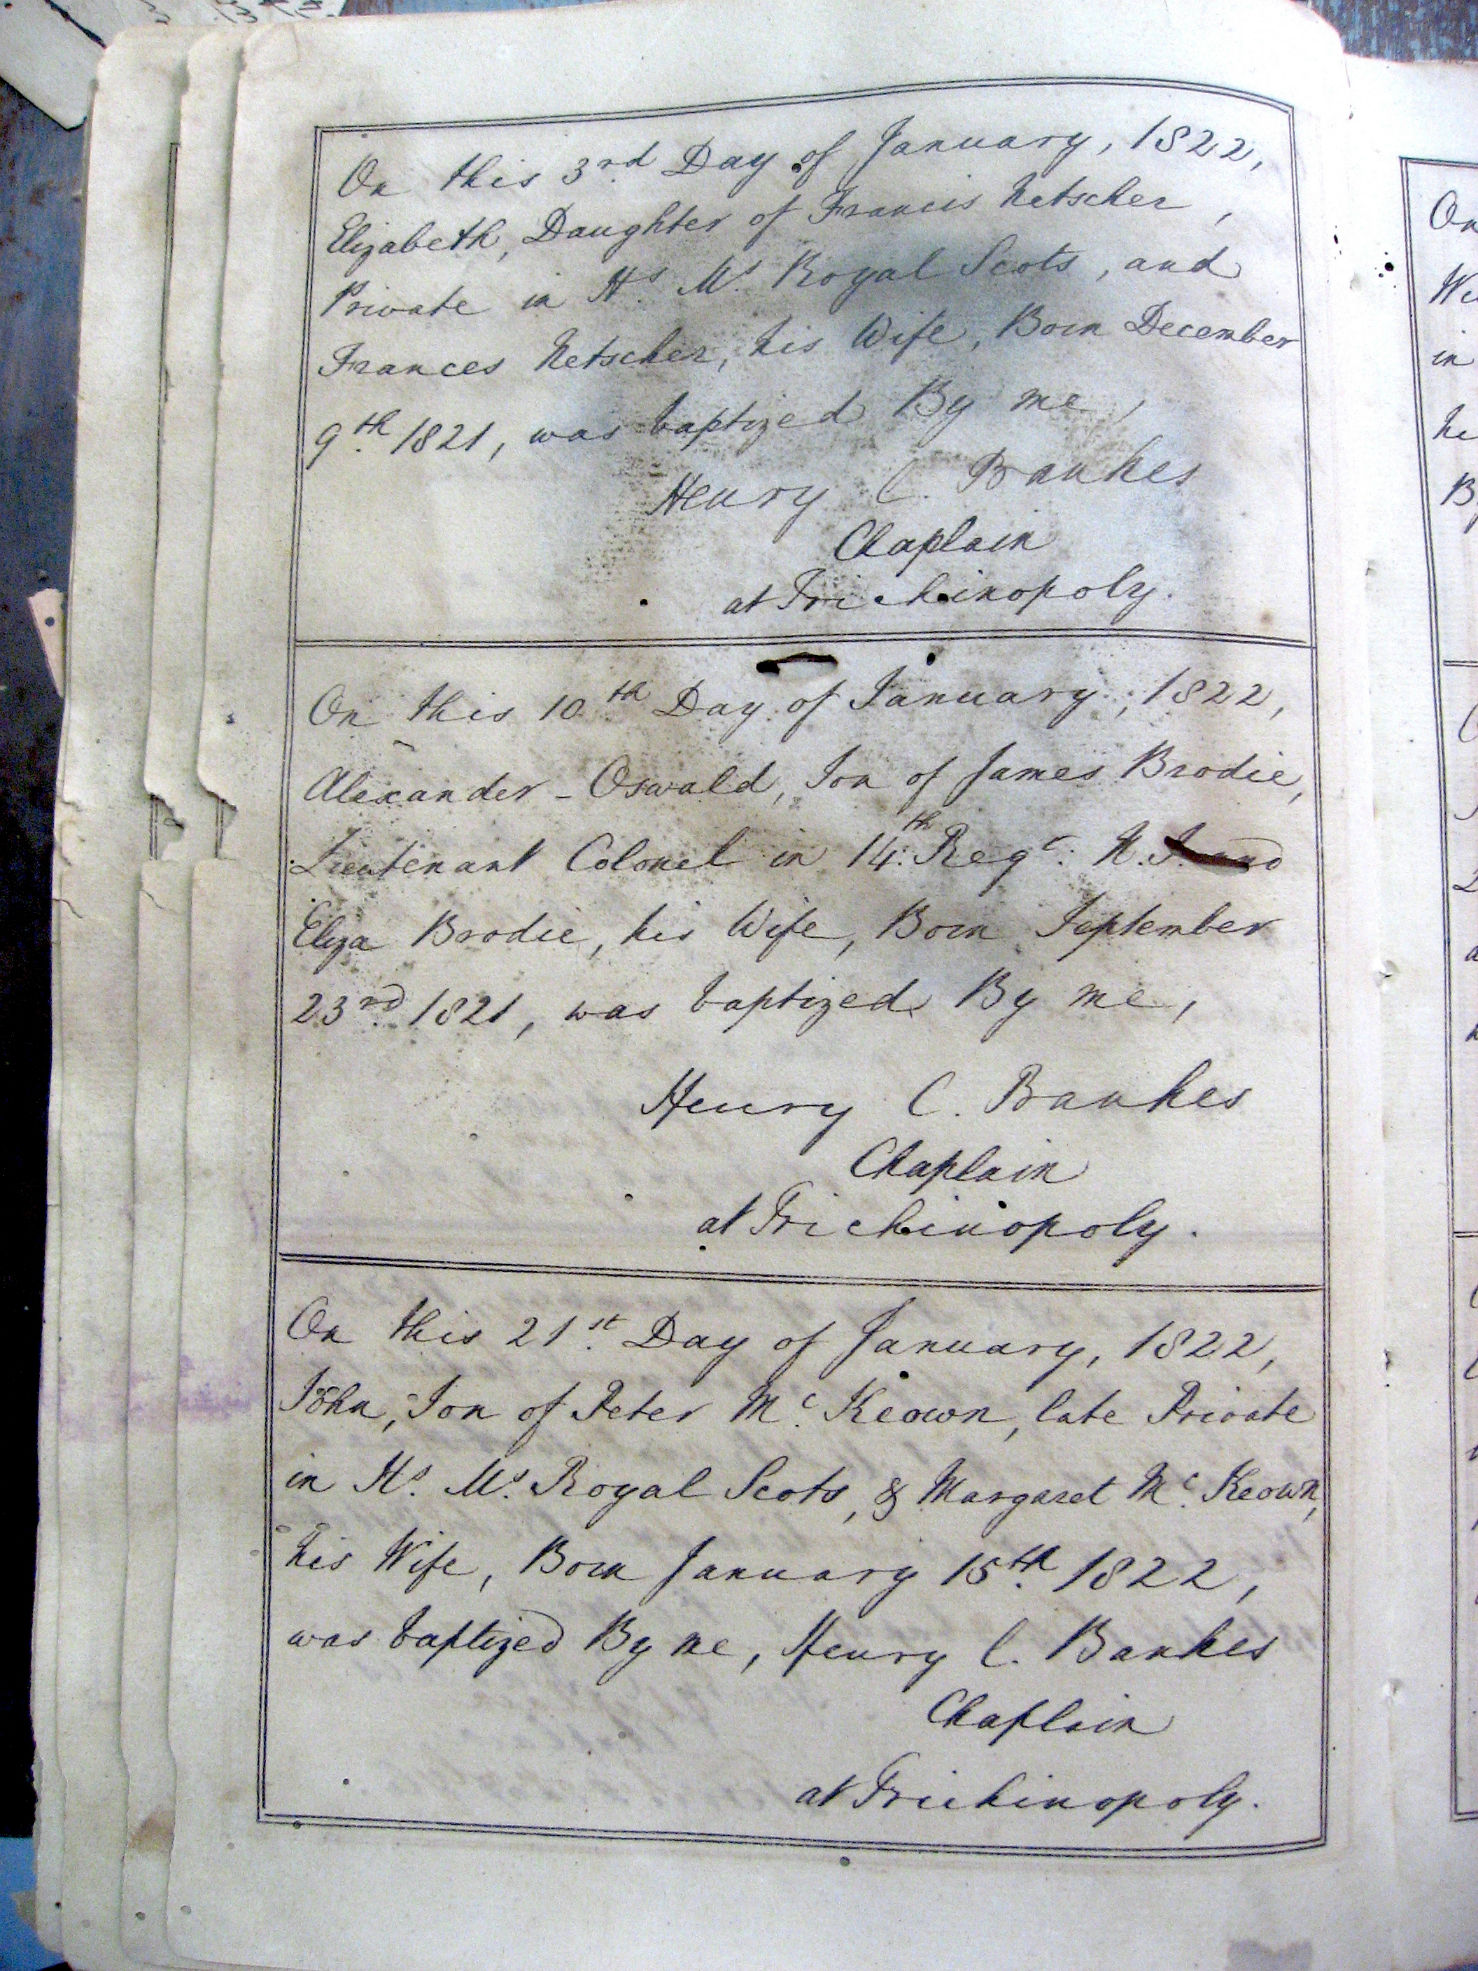 On this 3rd Day of January, 1822,
Elizabeth, Daughter of Francis Netscher,
Private in Hs. Ms. Royal Scots, and
Frances Netscher, his Wife, Born December
9th. 1821, was baptized By me,
Henry C. Bankes
Chaplain
at Trichinopoly.
On this 10th Day of January, 1822,
Alexander - Oswald, Son of James Brodie,
Lieutenant Colonel in 14th. Regt. N. I. and
Eliza Brodie, his Wife, Born September
23rd 1821, was baptized By me,
Henry C. Bankes
Chaplain
at Trichinopoly.
On this 21st. Day of January, 1822,
John, Son of Peter Mc. Keown, late Private
in Hs. Ms. Royal Scots, & Margaret Mc. Keown,
his Wife, Born January 15th. 1822,
was baptized By me, Henry C. Bankes
Chaplain
at Trichinopoly.
On
in